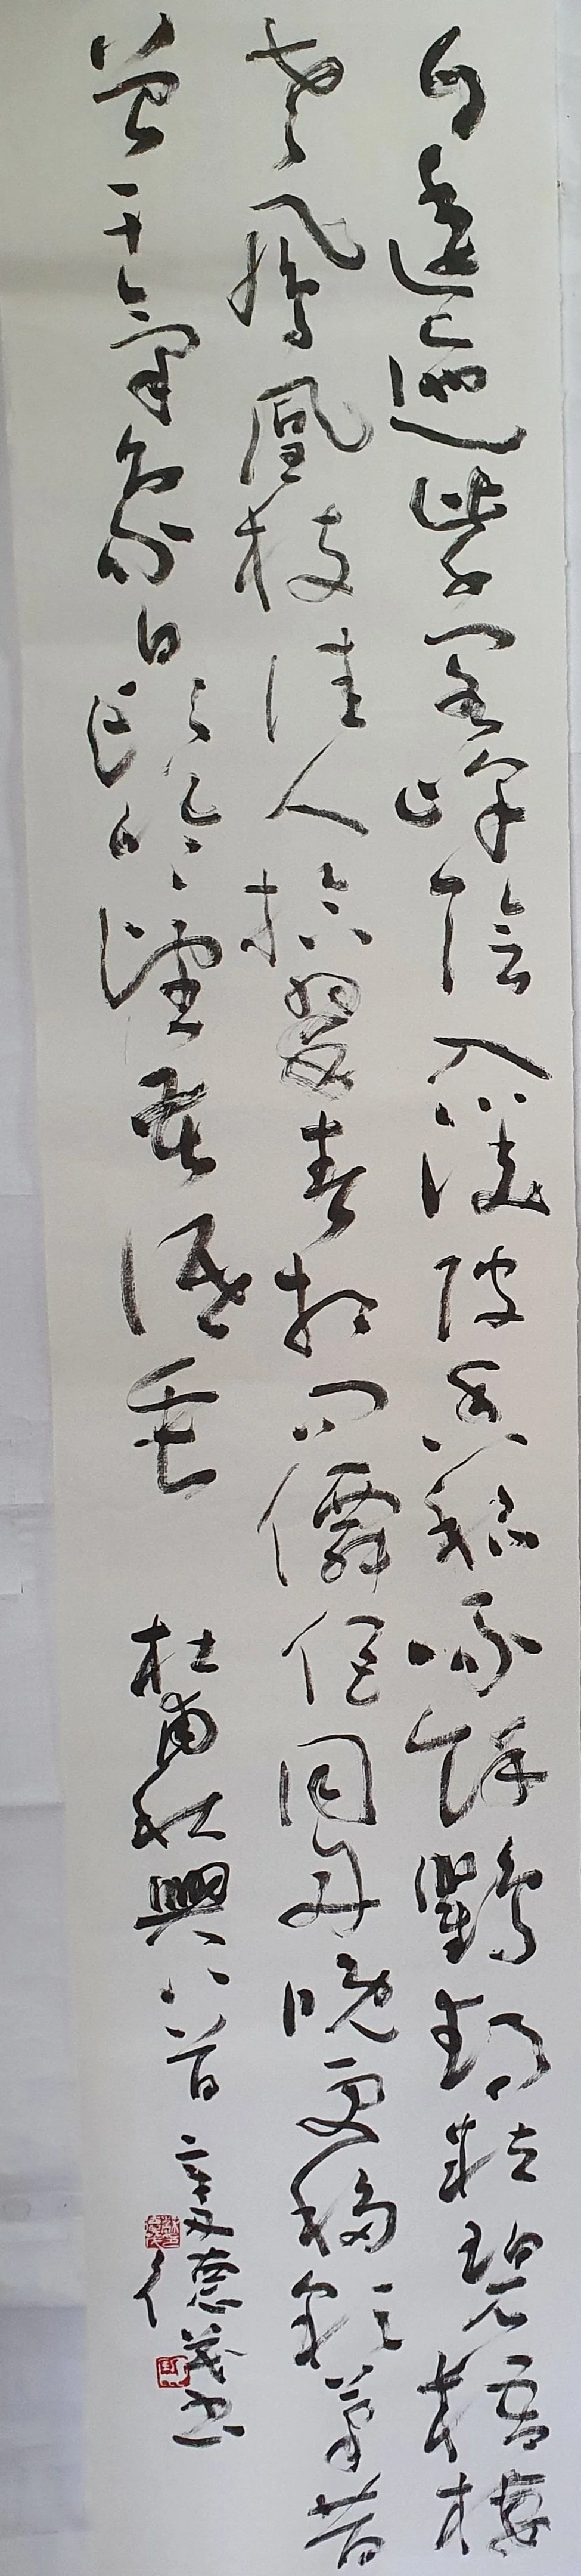 自逶迤紫閣峰陰入渼陂香稻啄餘鸚鵡粒碧梧棲
老鳳凰枝佳人拾翠春相問僊侶同舟晚更移彩筆昔
曾干氣象白頭吟望苦低垂 杜甫秋興八首 辛丑德茂書